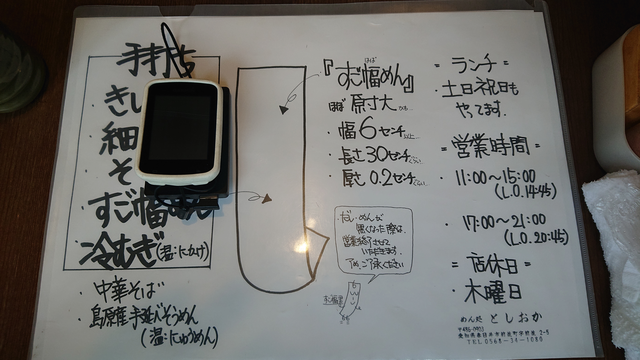 手打ち
・きし
・細
・そ
・すご幅めん
・冷むぎ(温:にかけ)
・中華そば
・島原産手延べそうめん
(温:にゅうめん)
『すご幅めん』
はば
ほぼ 原寸大
・幅6センチ
・長さ30センチ
・厚さ0.2センチ
だし・めんが
無くなった際は、
営業終了させて
いただきます。
予め、ご了承ください
= ランチ =
・土日祝日も
やってます。
= 営業時間 =
・11:00〜15:00
(L.O.14:45)
・17:00〜21:00
(L.O.20:45)
= 店休日 =
・木曜日
めん処 としおか
〒486-0921
TEL 0568-34-1080